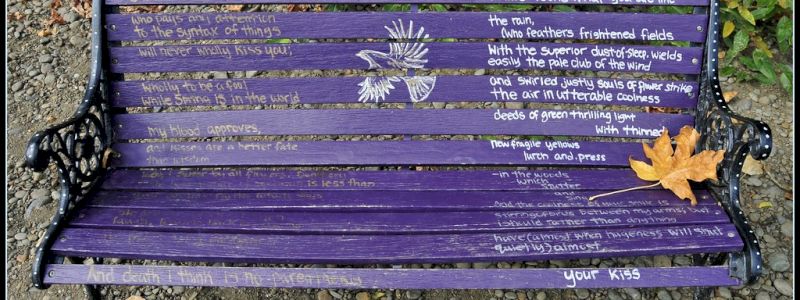 who pays any attention
to the syntax of things
will never wholly kiss you;
wholly to be a fool
while Spring is in the world
my blood approves,
and kisses are a better fate
than wisdom
is less than
And death i think is no parenthesis
the rain,
(who feathers frightened fields
With the superior dust of sleep, wields
easily the pale club of the wind
and swirled justly souls of flower strike
the air in utterable coolness
deeds of green thrilling light
With thinned
new fragile yellows
lurch and press
-in the woods
which
stutter
and
sing
And the coolness of your smile is
stirring of birds between my arms; but
i should rather than anything
have (almost when hugeness will shut
quietly) almost,
your kiss